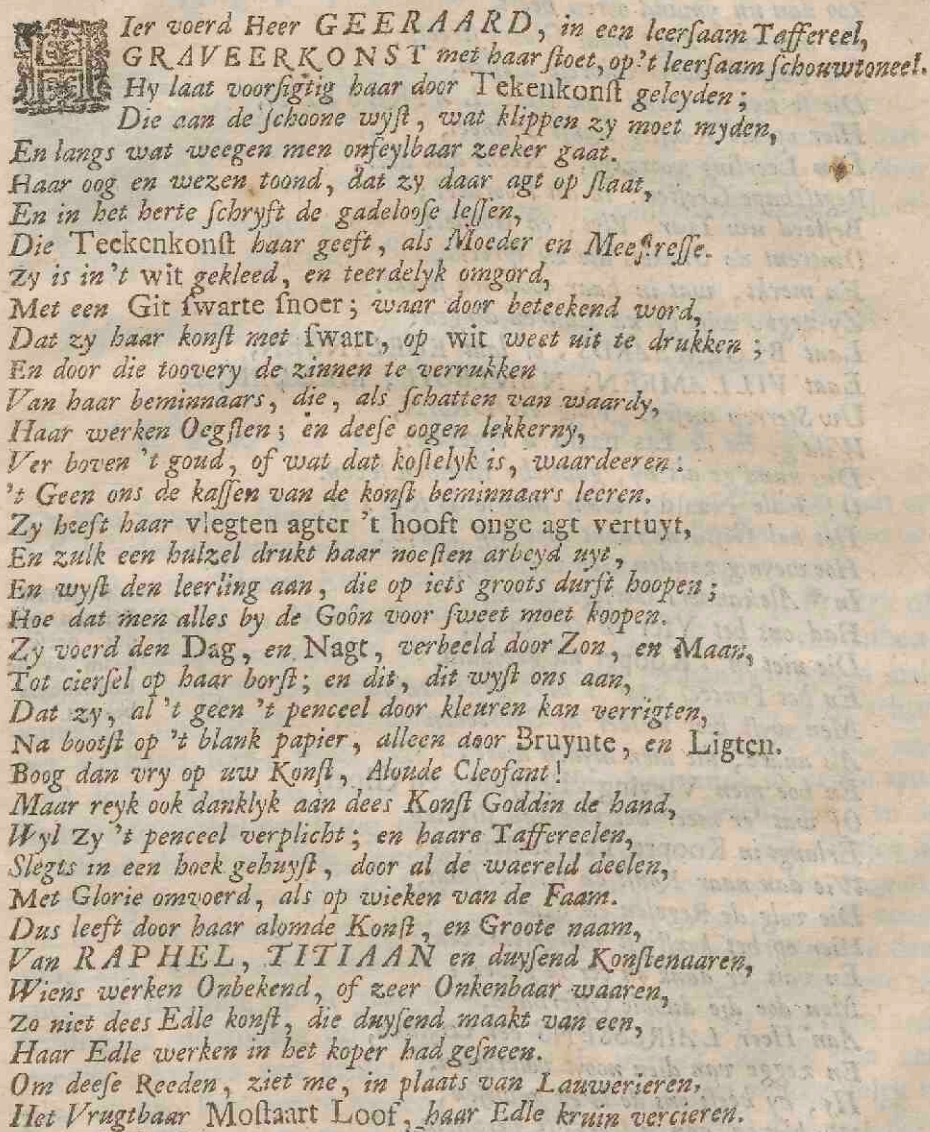 HIer voerd Heer GEERAARD, in een leerſaam Taffereel,
GRAVEERKONST met haar ſtoet, op 't leerſaam ſchouwtoneel.
Hy laat voorſigtig haar door Tekenkonſt geleyden;
Die aan de ſchoone wyſt, wat klippen zy moet myden,
En langs wat weegen men onfeylbaar zeeker gaat.
Haar oog en wezen toond, dat zy daar agt op ſlaat,
En in het herte ſchryft de gadelooſe leſſen,
Die Teekenkonſt haar geeft, als Moeder en Meeſtreſſe.
Zy is in 't wit gekleed, en teerdelyk omgord,
Met een Git ſwarte ſnoer; waar door beteekend word,
Dat zy haar konſt met ſwart, op wit weet uit te drukken;
En door die toovery de zinnen te verrukken
Van haar beminnaars, die, als ſchatten van waardy,
Haar werken Oegſten; en deeſe oogen lekkerny,
Ver boven 't goud, of wat dat koſtelyk is, waardeeren:
't Geen ons de kaſſen van de konſt beminnaars leeren.
Zy heeft haar vlegten agter 't hooft onge agt vertuyt,
En zulk een hulzel drukt haar noeſten arbeyd uyt,
En wyſt den leerling aan, die op iets groots durft hoopen;
Hoe dat men alles by de Goôn voor ſweet moet koopen.
Zy voerd den Dag, en Nagt, verbeeld door Zon, en Maan,
Tot cierſel op haar borſt; en dit, dit wyſt ons aan,
Dat zy, al 't geen 't penceel door kleuren kan verrigten,
Na bootſt op 't blank papier, alleen door Bruynte, en Ligten.
Boog dan vry op uw Konſt, Aloude Cleofant!
Maar reyk ook danklyk aan dees Konſt Goddin de hand,
Wyl Zy 't penceel verplicht; en haare Taffereelen,
Slegts in een hoek gehuyſt, door al de waereld deelen,
Met Glorie omvoerd, als op wieken van de Faam.
Dus leeft door haar alomde Konſt, en Groote naam,
Van RAPHEL, TITIAAN en duyſend Konſtenaaren,
Wiens werken Onbekend, of zeer Onkenbaar waaren,
Zo niet dees Edle konſt, die duyſend maakt van een,
Haar Edle werken in het koper had geſneen.
Om deeſe Reeden, ziet me, in plaats van Lauwerieren,
Het Vrugtbaar Moſtaart Loof, haar Edle kruin vercieren.